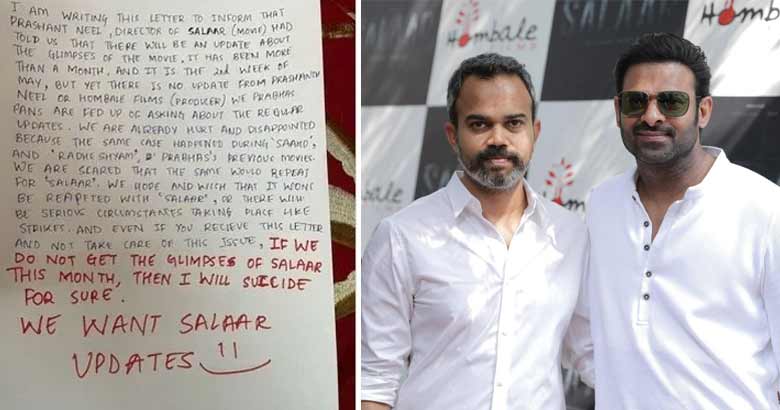 I AM WRITING THIS LETTER TO INFORM THAT
PRASHANT NEEL, DIRECTOR OF SALAAR (MOVIE) HAD
TOLD US THAT THERE WILL BE AN UPDATE ABOUT
THE GLIMPSES OF THE MOVIE, IT HAS BEEN MORE
THAN A MONTH. AND IT IS THE 2nd WEEK OF
MAY, BUT YET THERE IS NO UPDATE FROM PRASHANTH
NEEL OR HOMBALE FILMS (PRODUCER) WE PRABHAS
FANS ARE FED UP OF ASKING ABOUT THE REGULAR
UPDATES. WE ARE ALREADY HURT AND DISAPPOINTED
BECAUSE THE SAME CASE HAPPENED DURING 'SAAHO',
AND 'RADHESHYAM', PRABHAS'S PREVIOUS MOVIES.
WE ARE SCARED THAT THE SAME WOULD REPEAT
FOR 'SALAAR'. WE HOPE AND WISH THAT IT WONT
BE REAPETED WITH 'SALAAR', OR THERE WILL
BE SERIOUS CIRCUMSTANCES TAKING PLACE LIKE
STRIKES. AND EVEN IF YOU RECIEVE THIS LETTER
AND NOT TAKE CARE OF THIS ISSUE, IF WE
DO NOT GET THE GLIMPSES OF SALAAR
THIS MONTH, THEN I WILL SUICIDE
FOR SURE.
WE WANT SALAAR
UPDATES
Hombale
SALAAR
Hombale
Hombale